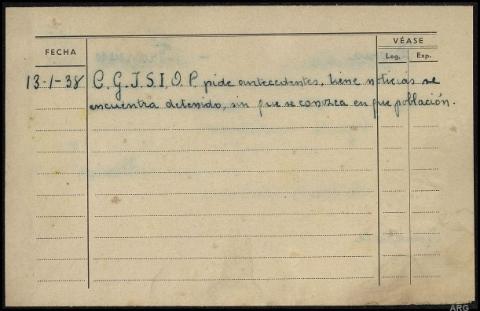 VÉASE
FECHA
Leg.
Exp.
13-1-38 C.G.J.S.I.O.P. pide antecedentes, tiene noticias se
encuentra detenido, sin que se conozca en que población.
ARG